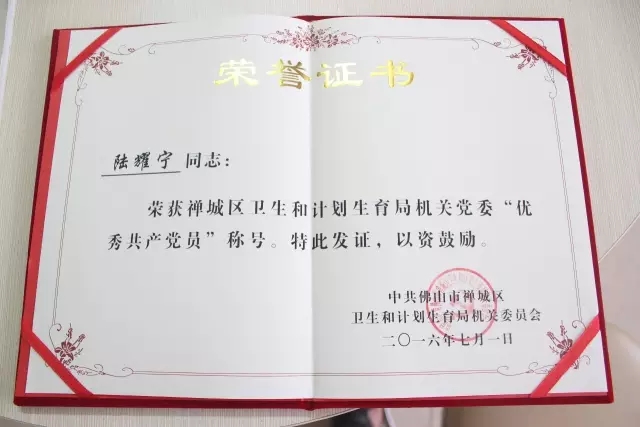 荣誉证书
陆耀宁 同志：
荣获禅城区卫生和计划生育局机关党委“优
秀共产党员”称号。特此发证，以资鼓励。
中共佛山市禅城区
卫生和计划生育局机关委员会
二〇一六年七月一日